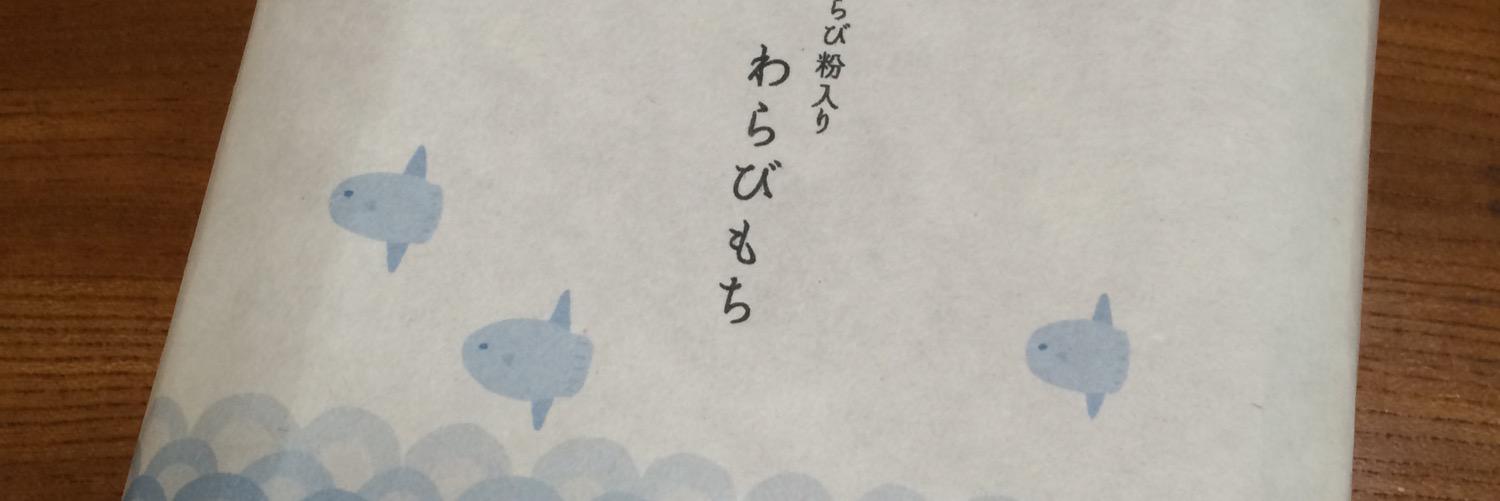 らび粉入り
わらびもち